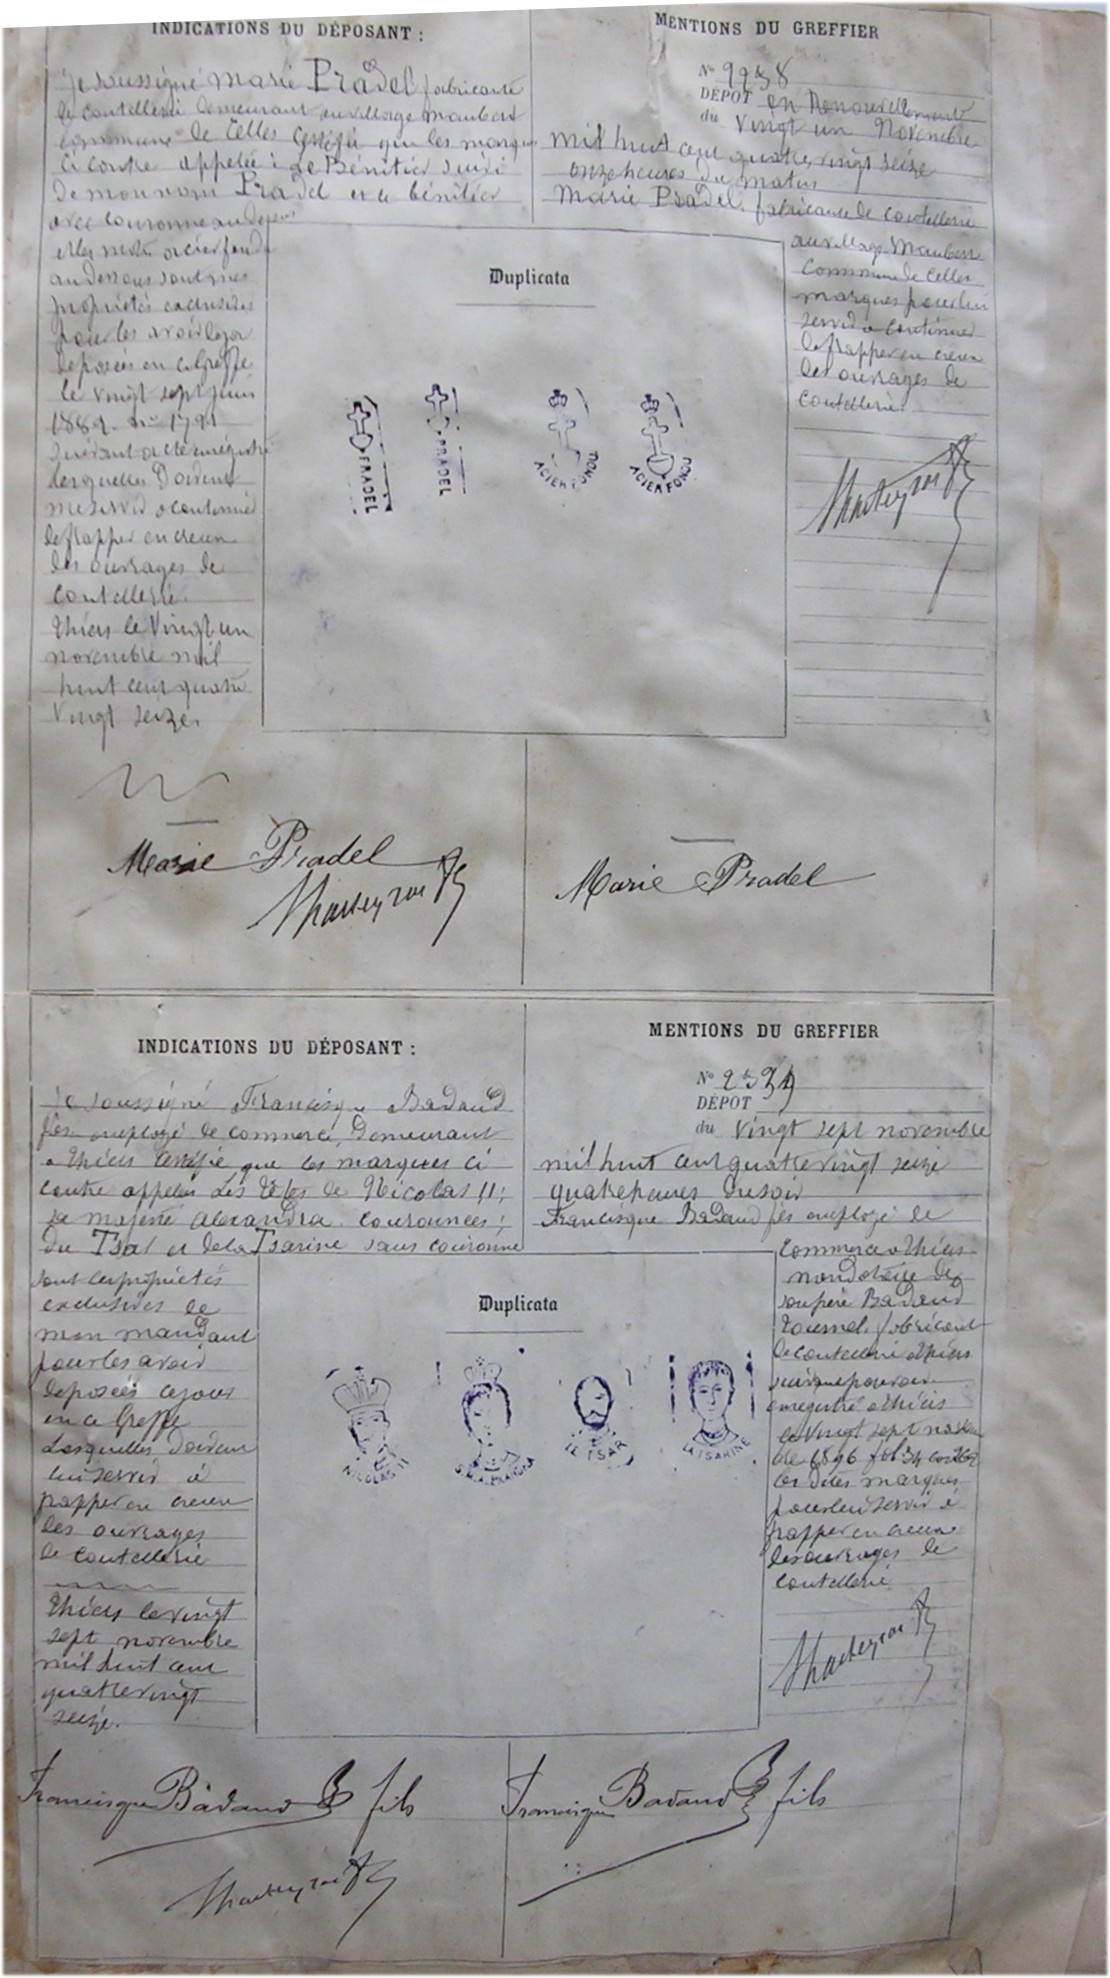 INDICATIONS DU DÉPOSANT :
Je soussigné Marie Pradel fabricante
de coutellerie demeurant au village Maubert
commune de Celles certifie que les marques
ci contre appelée : Le Bénitier suivi
de mon nom Pradel et le bénitier
avec couronne au dessus
et les mots acier fondu
au dessous sont mes
propriétés exclusives
pour les avoir
deposées en ce Greffe
le vingt sept juin
suivant acte enregistré
desquelles doivent
me servir a continuer
de frapper en creux
les ouvrages de
coutellerie
Thiers le Vingt un
novembre mil
huit cent quatre
vingt seize
Marie Pradel
MENTIONS DU GREFFIER
N°
DÉPOT en Renouvellement
du Vingt un Novembre
mil huit cent quatre vingt seize
onze heures du matin
Marie Pradel fabricante de coutellerie
au village Maubert
Commune de Celles
marques pour lui
servir a continuer
de frapper en creux
les ouvrages de
coutellerie
Marie Pradel
Duplicata
PRADEL
PRADEL
ACIER FONDU
ACIER FONDU
INDICATIONS DU DÉPOSANT :
Je soussigné Francisque Badaud
fils employé de commerce, demeurant
a Thiers certifie que les marques ci
contre appelées Les Têtes de Nicolas II ;
sa majesté Alexandra couronnées ;
du Tsar et de la Tsarine sans couronne
sont les propriétés
exclusives de
mon mandant
pour les avoir
deposées ce jour
en ce Greffe
Lesquelles doivent
lui servir à
frapper en creux
les ouvrages
de coutellerie
Thiers le vingt
sept novembre
mil huit cent
quatre vingt
seize.
Francisque Badaud fils
MENTIONS DU GREFFIER
N°
DÉPOT
du Vingt sept novembre
mil huit cent quatre vingt seize
quatre heures du soir
Francisque Badaud fils employé de
commerce a Thiers
mandataire de
son père Badaud
fabricant
de coutellerie a Thiers
suivant pouvoir
enregistré a Thiers
le Vingt sept
les dites marques
pour lui servir à
frapper en creux
les ouvrages de
coutellerie
Francisque Badaud fils
Duplicata
NICOLAS II
S.M. ALEXANDRA
LE TSAR
LA TSARINE